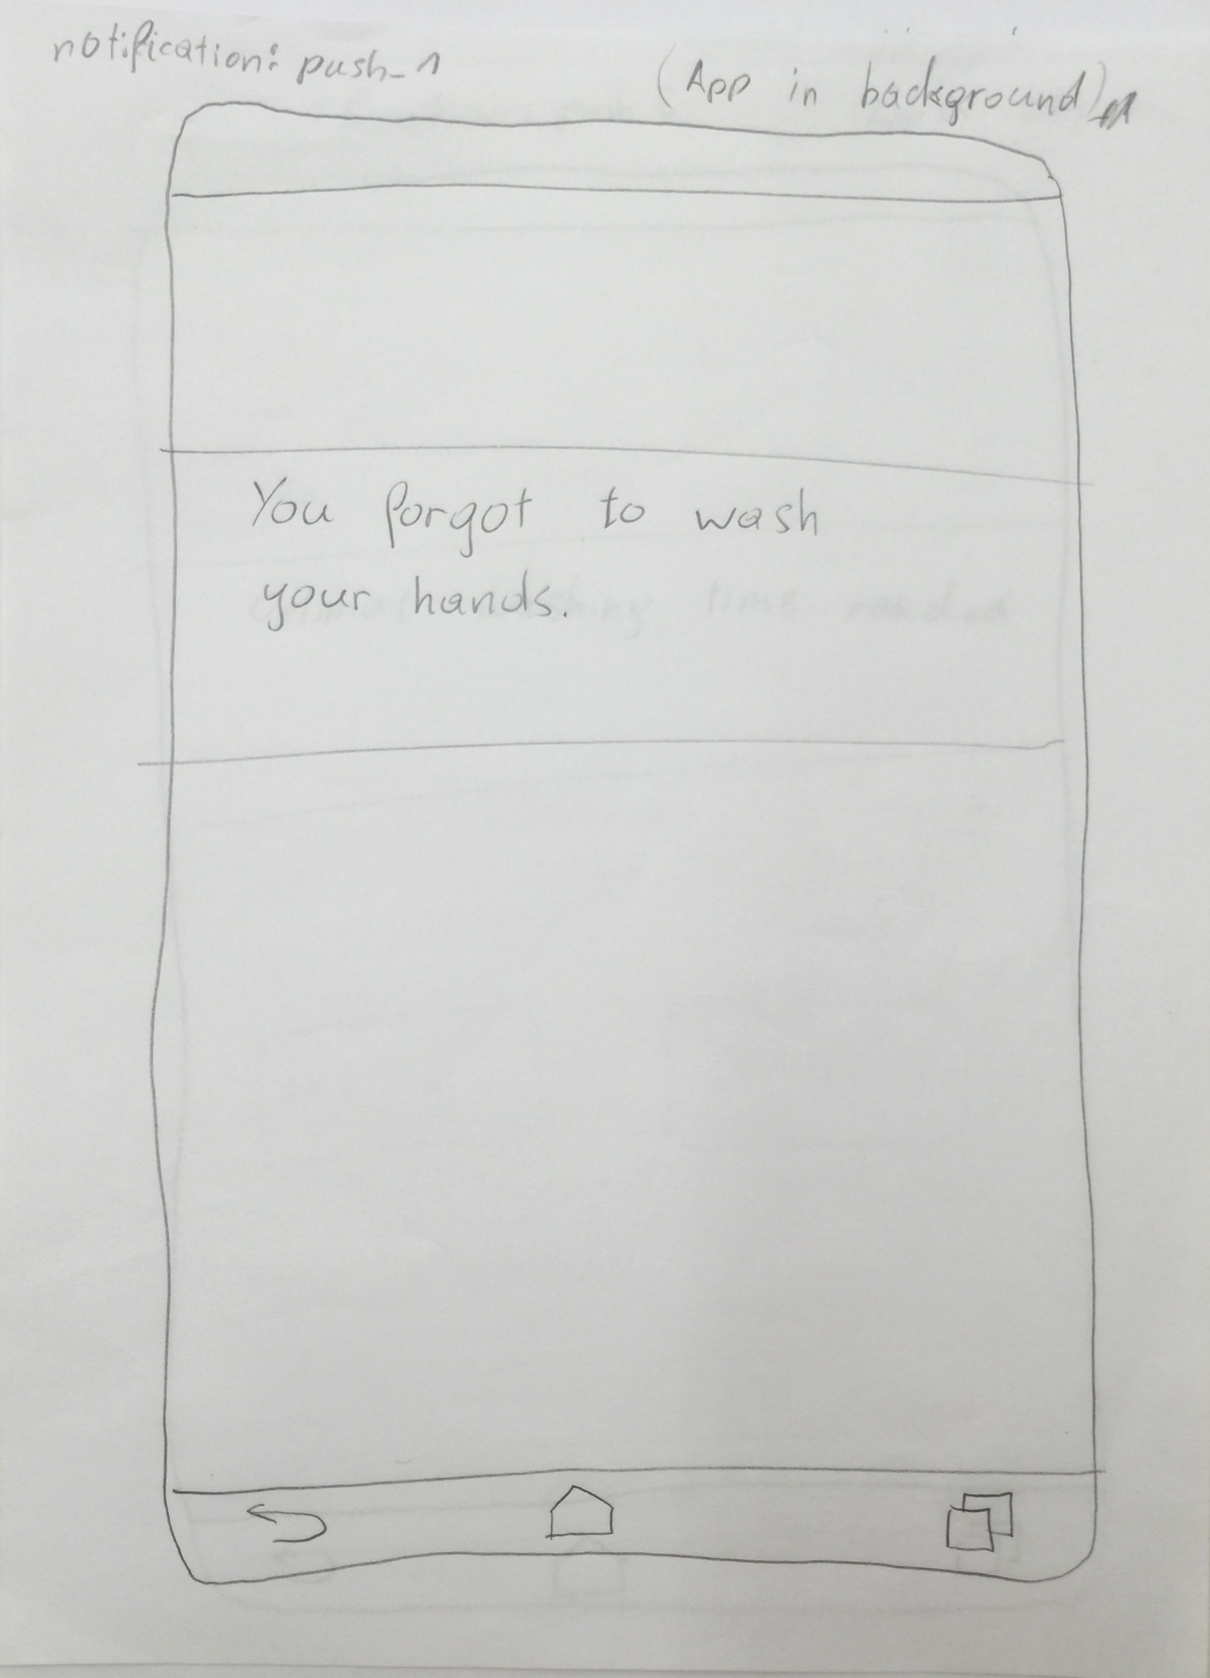 notification: push_1
(App in background)
You forgot to wash
your hands.
time needed